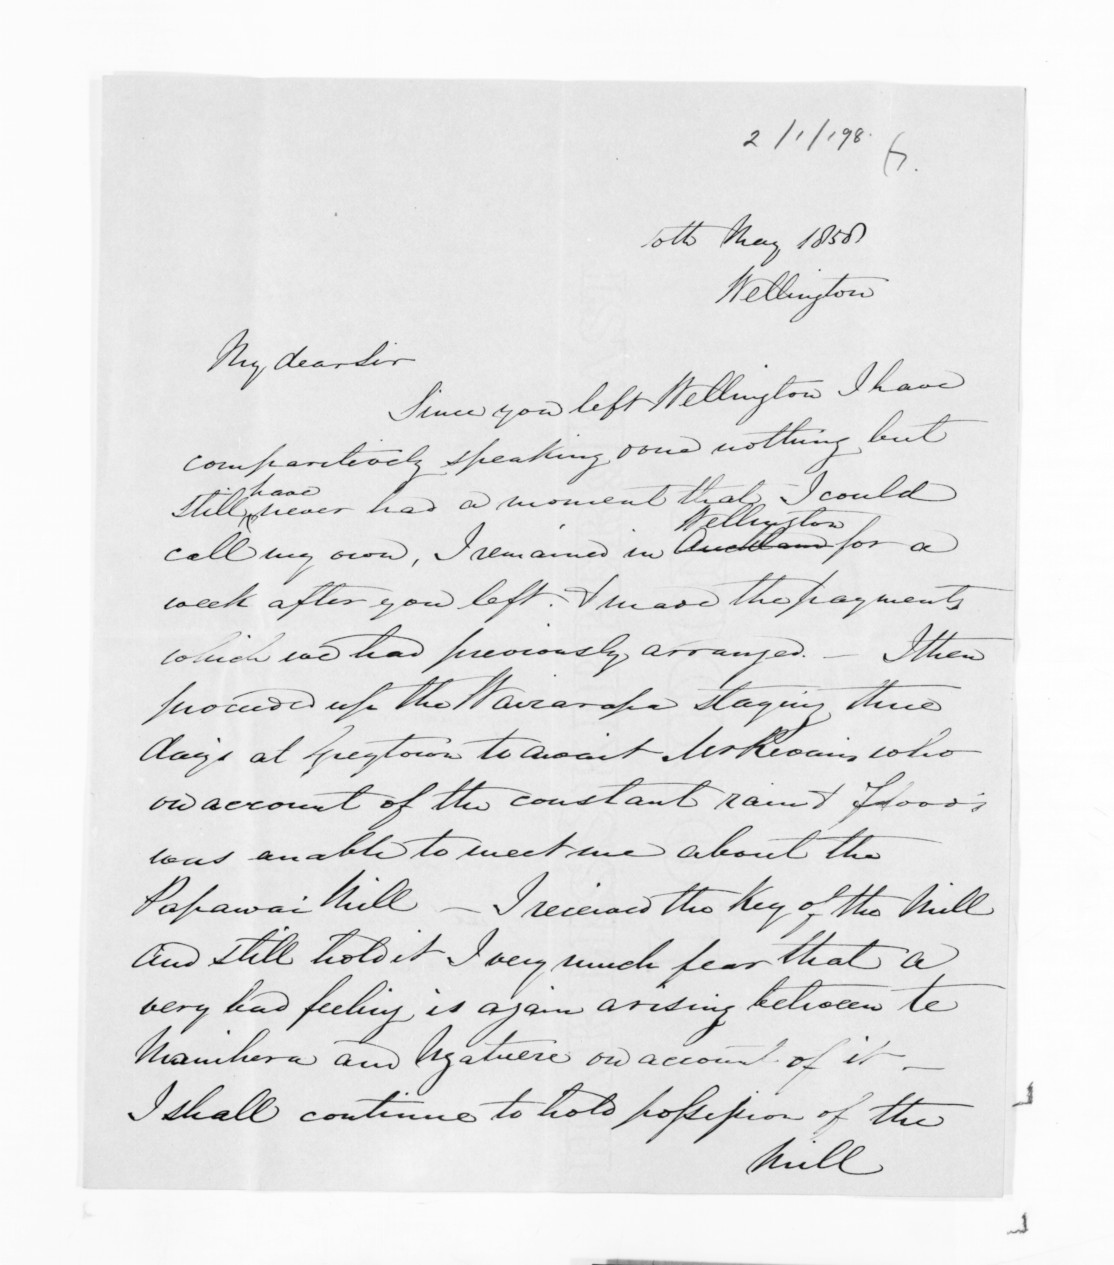 2/1/198.
10th May 1858
Wellington
My dear Sir
Since you left Wellington I have
comparitively speaking done nothing but
have
still never had a moment that I could
Wellington
call my own, I remained in Auckland for a
week after you left. & made the payments
which we had previously arranged. — I then
proceeded up the Wairarapa staying three
days at Greytown to await Mr Revans who
on account of the constant rain & floods
was unable to meet me about the
Papawai Mill — I received the Key of the Mill
and still hold it I very much fear that a
very bad feeling is again arising between te
Manihera and Ngatuere on account of it —
I shall continue to hold possession of the
Mill